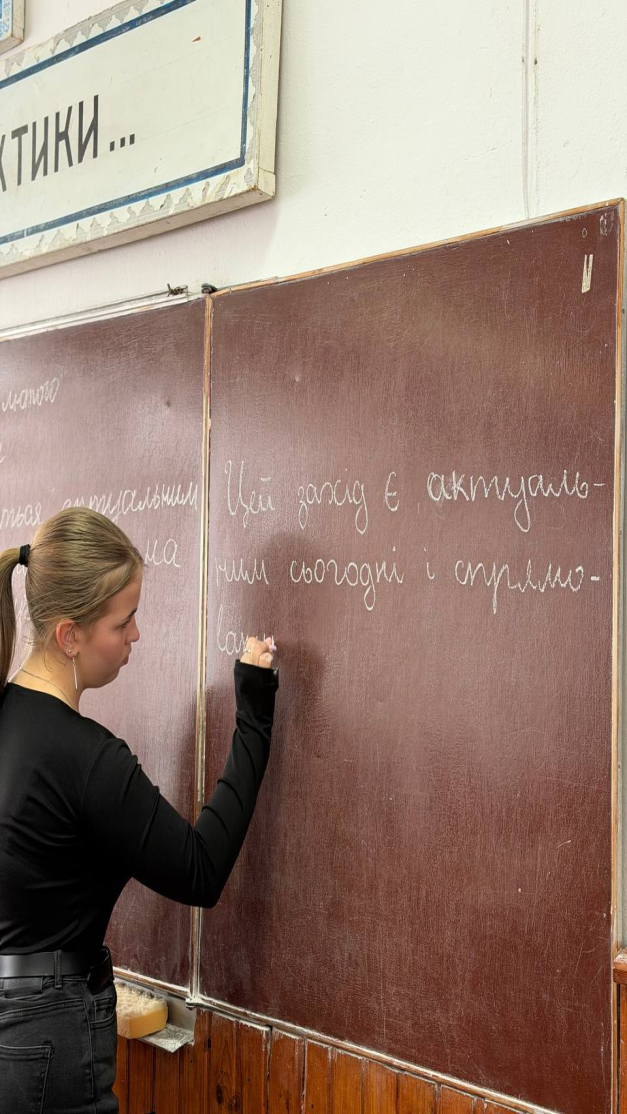 ктики...
лютого
ться актуальним
ма
Цей захід є актуаль-
ним сьогодні і спрямо-
ван